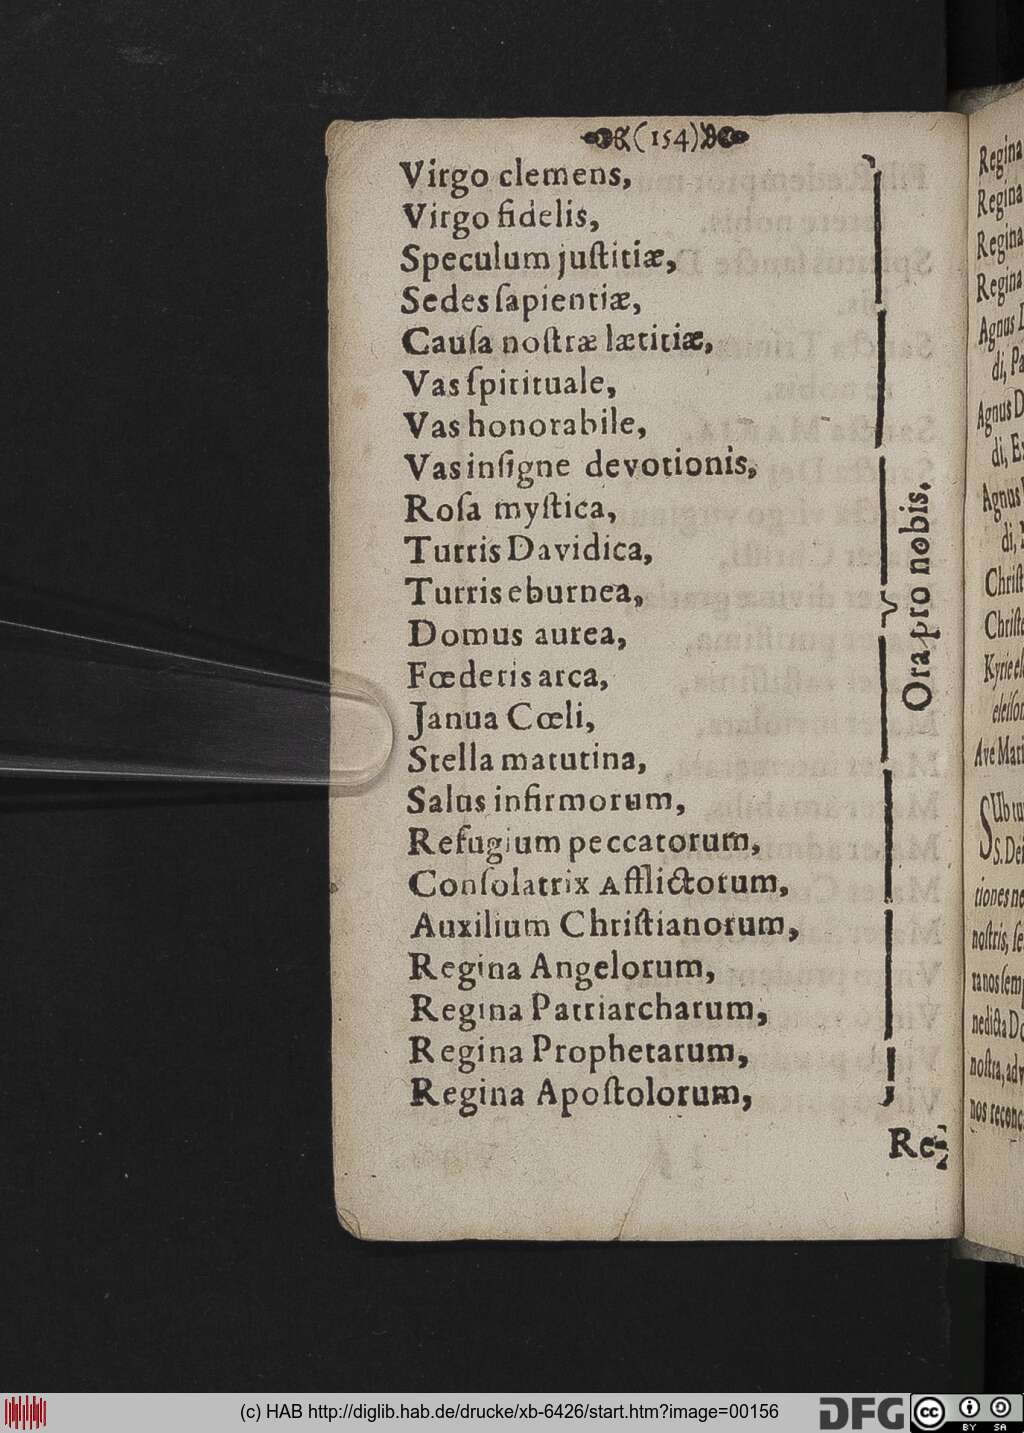 (154)
Virgo clemens,
Virgo fidelis,
Speculum juſtitiæ,
Sedes ſapientiæ,
Cauſa noſtræ lætitiæ,
Vas ſpirituale,
Vas honorabile,
Vas inſigne devotionis,
Roſa myſtica,
Turris Davidica,
Turris eburnea,
Domus aurea,
Fœderis arca,
Janua Cœli,
Stella matutina,
Salus infirmorum,
Refugium peccatorum,
Conſolatrix Afflictorum,
Auxilium Chriſtianorum,
Regina Angelorum,
Regina Patriarcharum,
Regina Prophetarum,
Regina Apoſtolorum,
Ora pro nobis.
Re-
Regina
Regina
Regina
Regina
Agnus
di,
Agnus
di,
Agnus
di,
Chriſt
Chriſt
Kyrie
Ave
S. Dei
tiones ne
noſtris,
nedicta
noſtra,
nos
(c) HAB http://diglib.hab.de/drucke/xb-6426/start.htm?image=00156
DFG
cc
BY SA